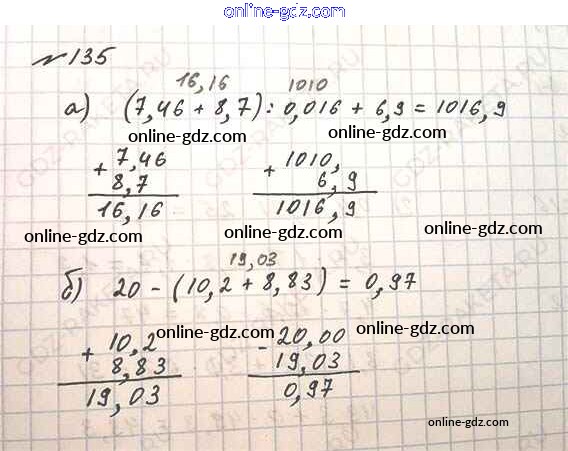 online-gdz.com
№ 135
16,16 1010
а) (7,46 + 8,7) : 0,016 + 6,9 = 1016,9
online-gdz.com online-gdz.com
+ 7,46 + 1010,
8,7 6,9
16,16 1016,9
online-gdz.com online-gdz.com online-gdz.com
19,03
б) 20 - (10,2 + 8,83) = 0,97
online-gdz.com online-gdz.com
+ 10,2 - 20,00
8,83 19,03
19,03 0,97
online-gdz.com